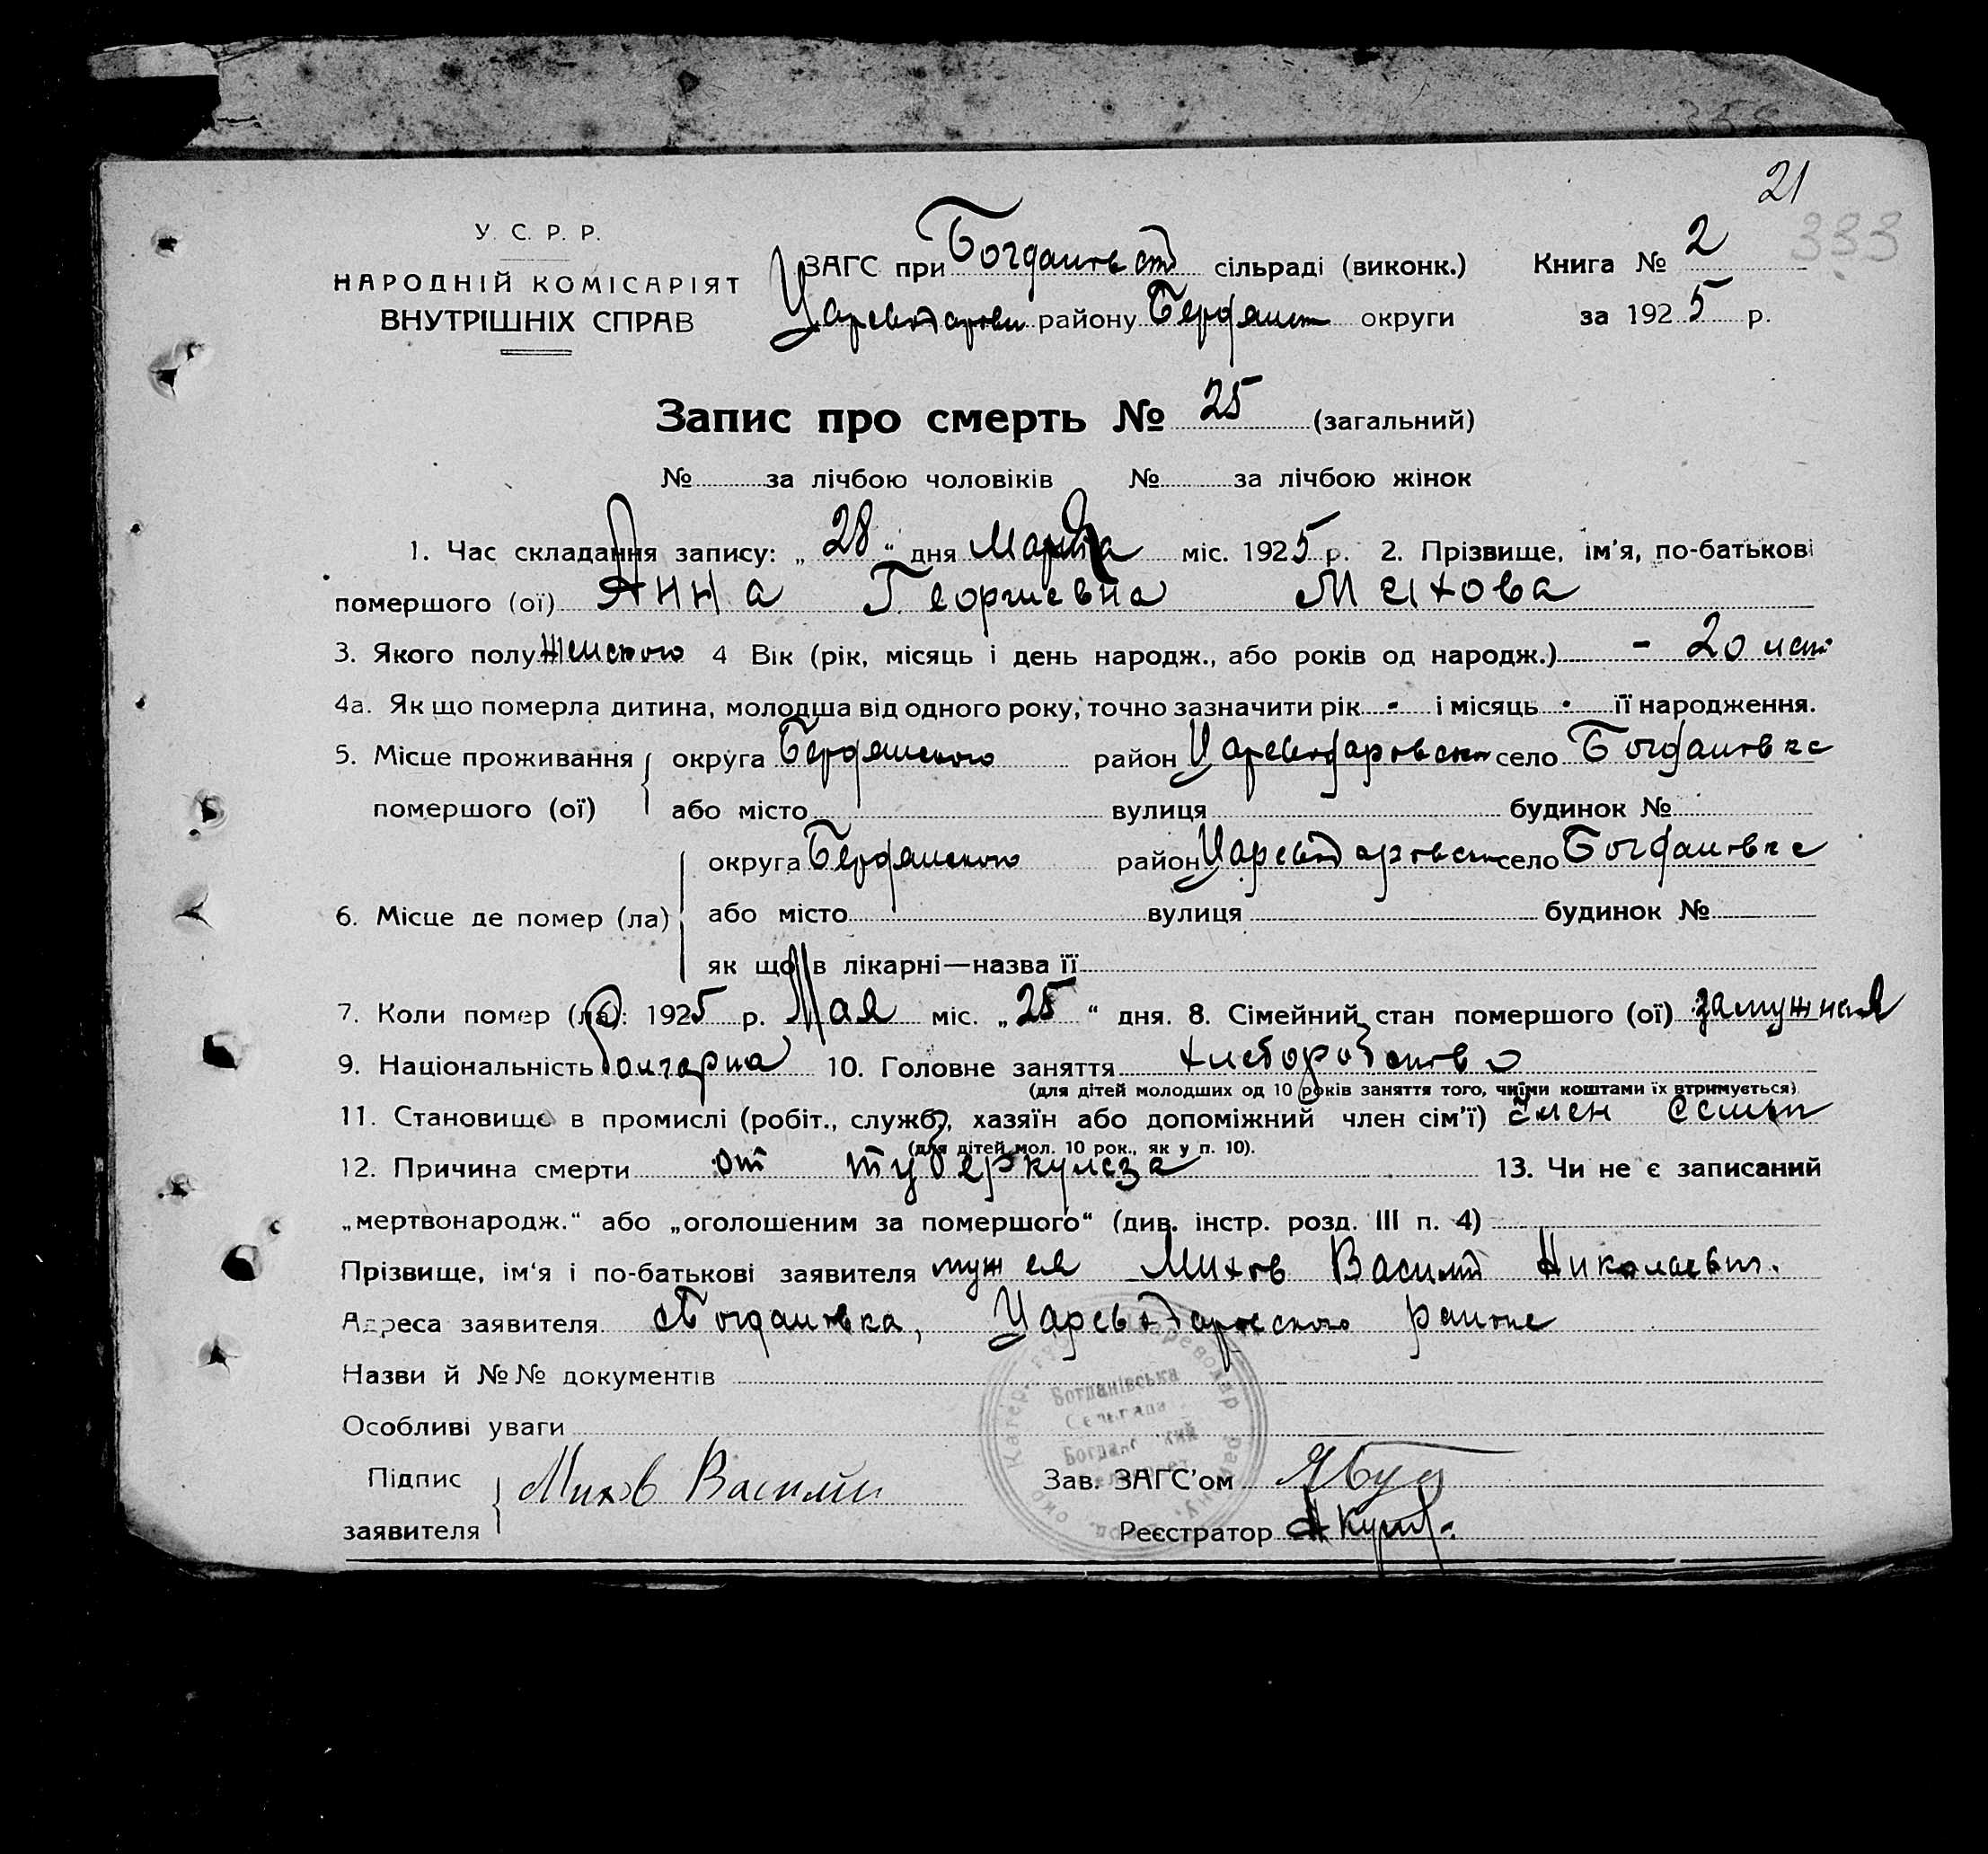 21
333
У. С. Р. Р.
НАРОДНІЙ КОМІСАРІЯТ
ВНУТРІШНІХ СПРАВ
ЗАГС при Богдановск сільраді (виконк.) Книга № 2
Цареводаровск району Бердянск округи за 1925 р.
Запис про смерть № 25 (загальний)
№ за лічбою чоловіків № за лічбою жінок
1. Час складання запису: „28“ дня Марта міс. 1925 р. 2. Прізвище, ім'я, по-батькові
помершого (ої) Анна Георгиевна Михова
3. Якого полу Женского 4 Вік (рік, місяць і день народж., або років од народж.) - 20 лет
4а. Як що померла дитина, молодша від одного року, точно зазначити рік - і місяць - її народження.
5. Місце проживання округа Бердянского район Цареводаровского село Богдановке
помершого (ої) або місто вулиця будинок №
округа Бердянского район Цареводаровского село Богдановке
6. Місце де помер (ла) або місто вулиця будинок №
як що в лікарні—назва її
7. Коли помер (ла): 1925 р. Мая міс. „25“ дня. 8. Сімейний стан помершого (ої) замужняя
9. Національність болгарка 10. Головне заняття хлеборобство
(для дітей молодших од 10 років заняття того, чиїми коштами їх втримується)
11. Становище в промислі (робіт., служб., хазяїн або допоміжний член сім'ї) член семьи
(для дітей мол. 10 рок., як у п. 10).
12. Причина смерти от туберкулеза 13. Чи не є записаний
„мертвонародж.“ або „оголошеним за помершого“ (див. інстр. розд. III п. 4)
Прізвище, ім'я і по-батькові заявителя муж ея Михов Василий Николаевич.
Адреса заявителя с Богдановка, Цареводаровского района
Назви й №№ документів
Особливі уваги
Богданівська
Підпис Михов Василий Зав. ЗАГС'ом
заявителя Реєстратор